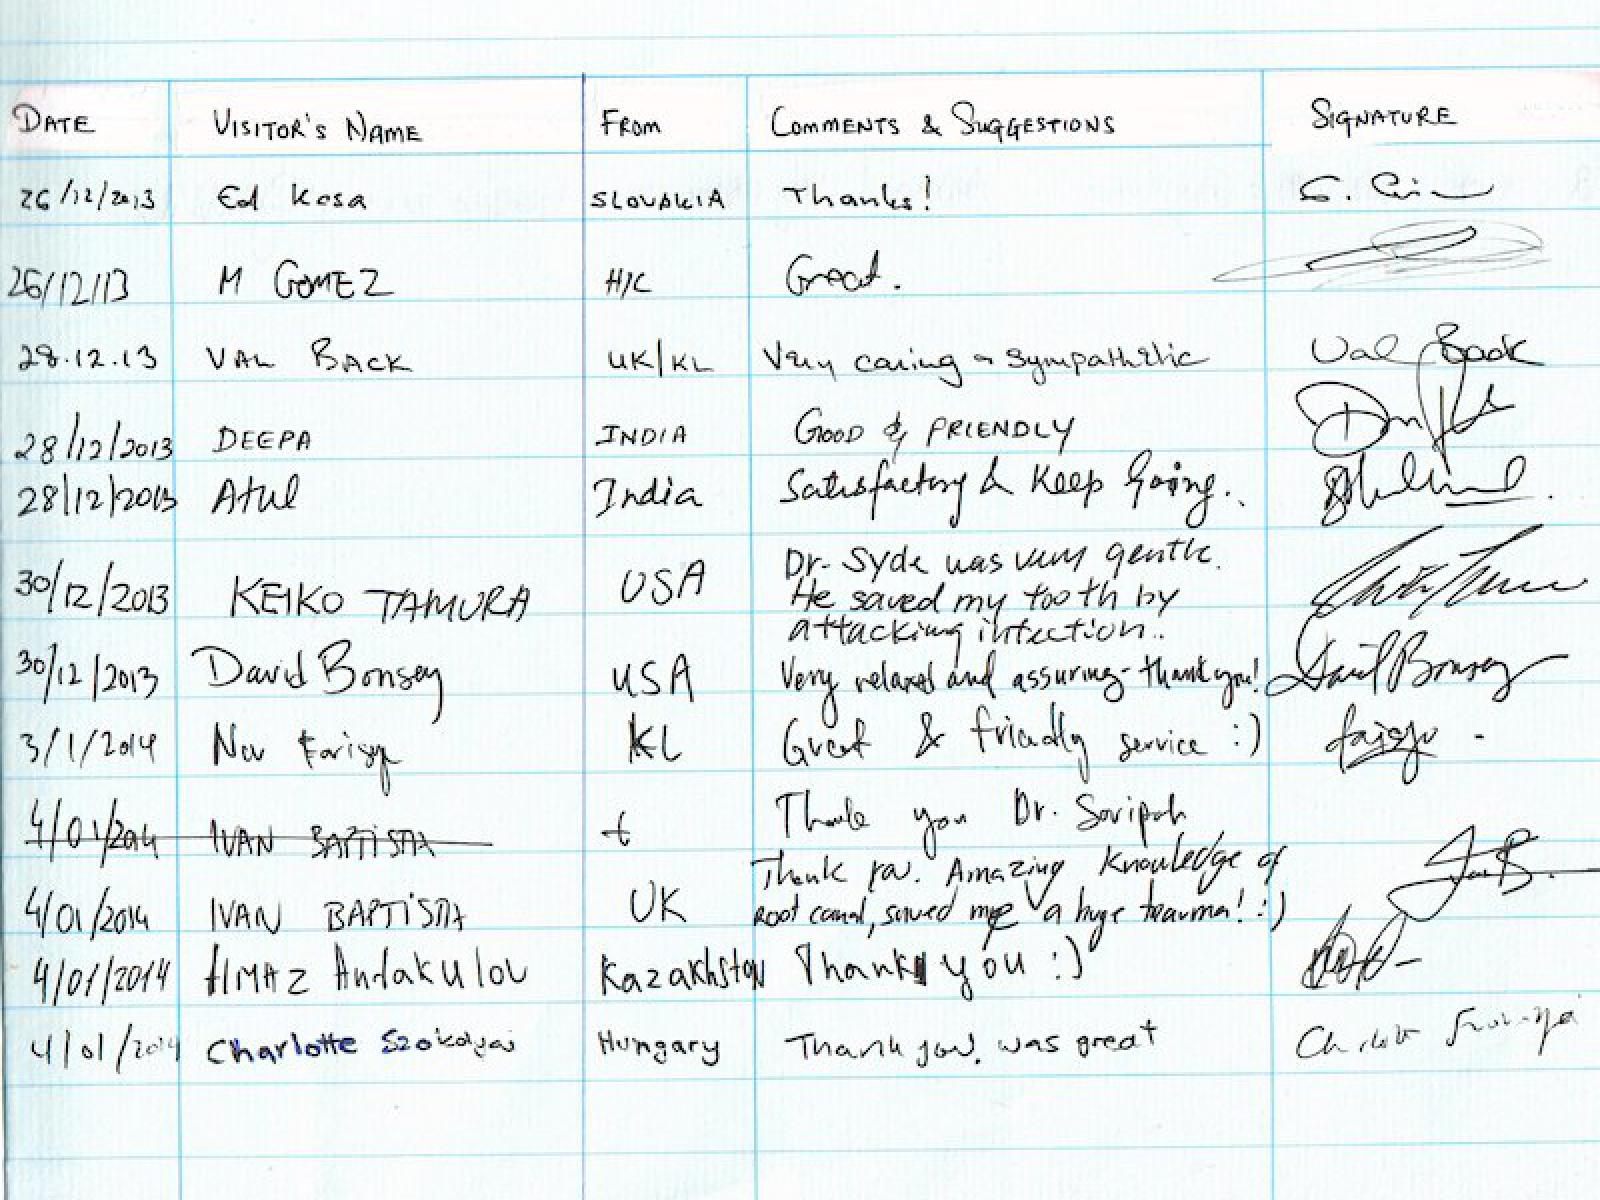 DATE VISITOR'S NAME FROM COMMENTS & SUGGESTIONS SIGNATURE
26/12/2013 Ed Kosa SLOVAKIA Thanks!
26/12/13 M GOMEZ H/C Great.
28.12.13 VAL BACK UK/KL Very caring & sympathetic Val Back
28/12/2013 DEEPA INDIA GOOD & FRIENDLY
28/12/2013 Atul India Satisfactory & Keep Going..
Dr. Syde was very gentle.
30/12/2013 KEIKO TAMURA USA He saved my tooth by
attacking infection..
30/12/2013 David Bonsey USA Very relaxed and assuring - thank you! David Bonsey
3/1/2014 Nur KL Great & friendly service :)
4/01/2014 IVAN BAPTISTA Thank you Dr.
Thank you. Amazing knowledge of
4/01/2014 IVAN BAPTISTA UK root canal, saved me a huge trauma! :)
4/01/2014 AlMAZ Kazakhstan Thank you :)
4/01/2014 Charlotte Hungary Thank you, was great